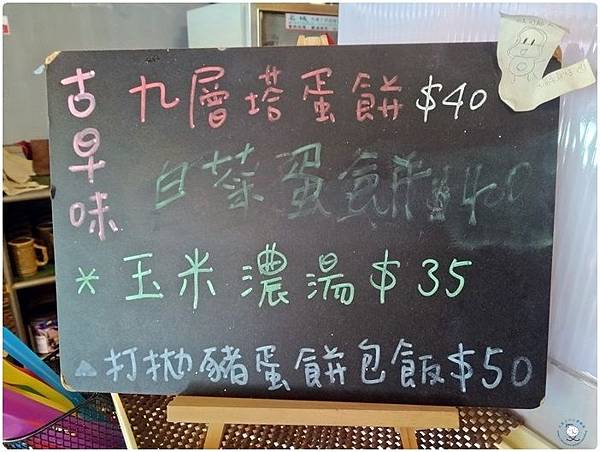 古早味
九層塔蛋餅 $40
白菜蛋餅 $40
* 玉米濃湯 $35
打拋豬蛋餅包飯 $50